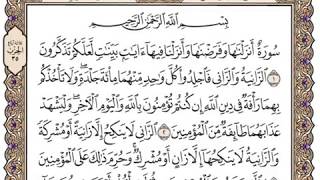 بِسْمِ ٱللَّهِ ٱلرَّحْمَٰنِ ٱلرَّحِيمِ
سُورَةٌ أَنزَلْنَٰهَا وَفَرَضْنَٰهَا وَأَنزَلْنَا فِيهَآ ءَايَٰتٍۭ بَيِّنَٰتٍ لَّعَلَّكُمْ تَذَكَّرُونَ
١ ٱلزَّانِيَةُ وَٱلزَّانِى فَٱجْلِدُوا۟ كُلَّ وَٰحِدٍ مِّنْهُمَا مِا۟ئَةَ جَلْدَةٍ وَلَا تَأْخُذْكُم
بِهِمَا رَأْفَةٌ فِى دِينِ ٱللَّهِ إِن كُنتُمْ تُؤْمِنُونَ بِٱللَّهِ وَٱلْيَوْمِ ٱلْءَاخِرِ وَلْيَشْهَدْ
عَذَابَهُمَا طَآئِفَةٌ مِّنَ ٱلْمُؤْمِنِينَ ٢ ٱلزَّانِى لَا يَنكِحُ إِلَّا زَانِيَةً أَوْ مُشْرِكَةً
وَٱلزَّانِيَةُ لَا يَنكِحُهَآ إِلَّا زَانٍ أَوْ مُشْرِكٌ وَحُرِّمَ ذَٰلِكَ عَلَى ٱلْمُؤْمِنِينَ